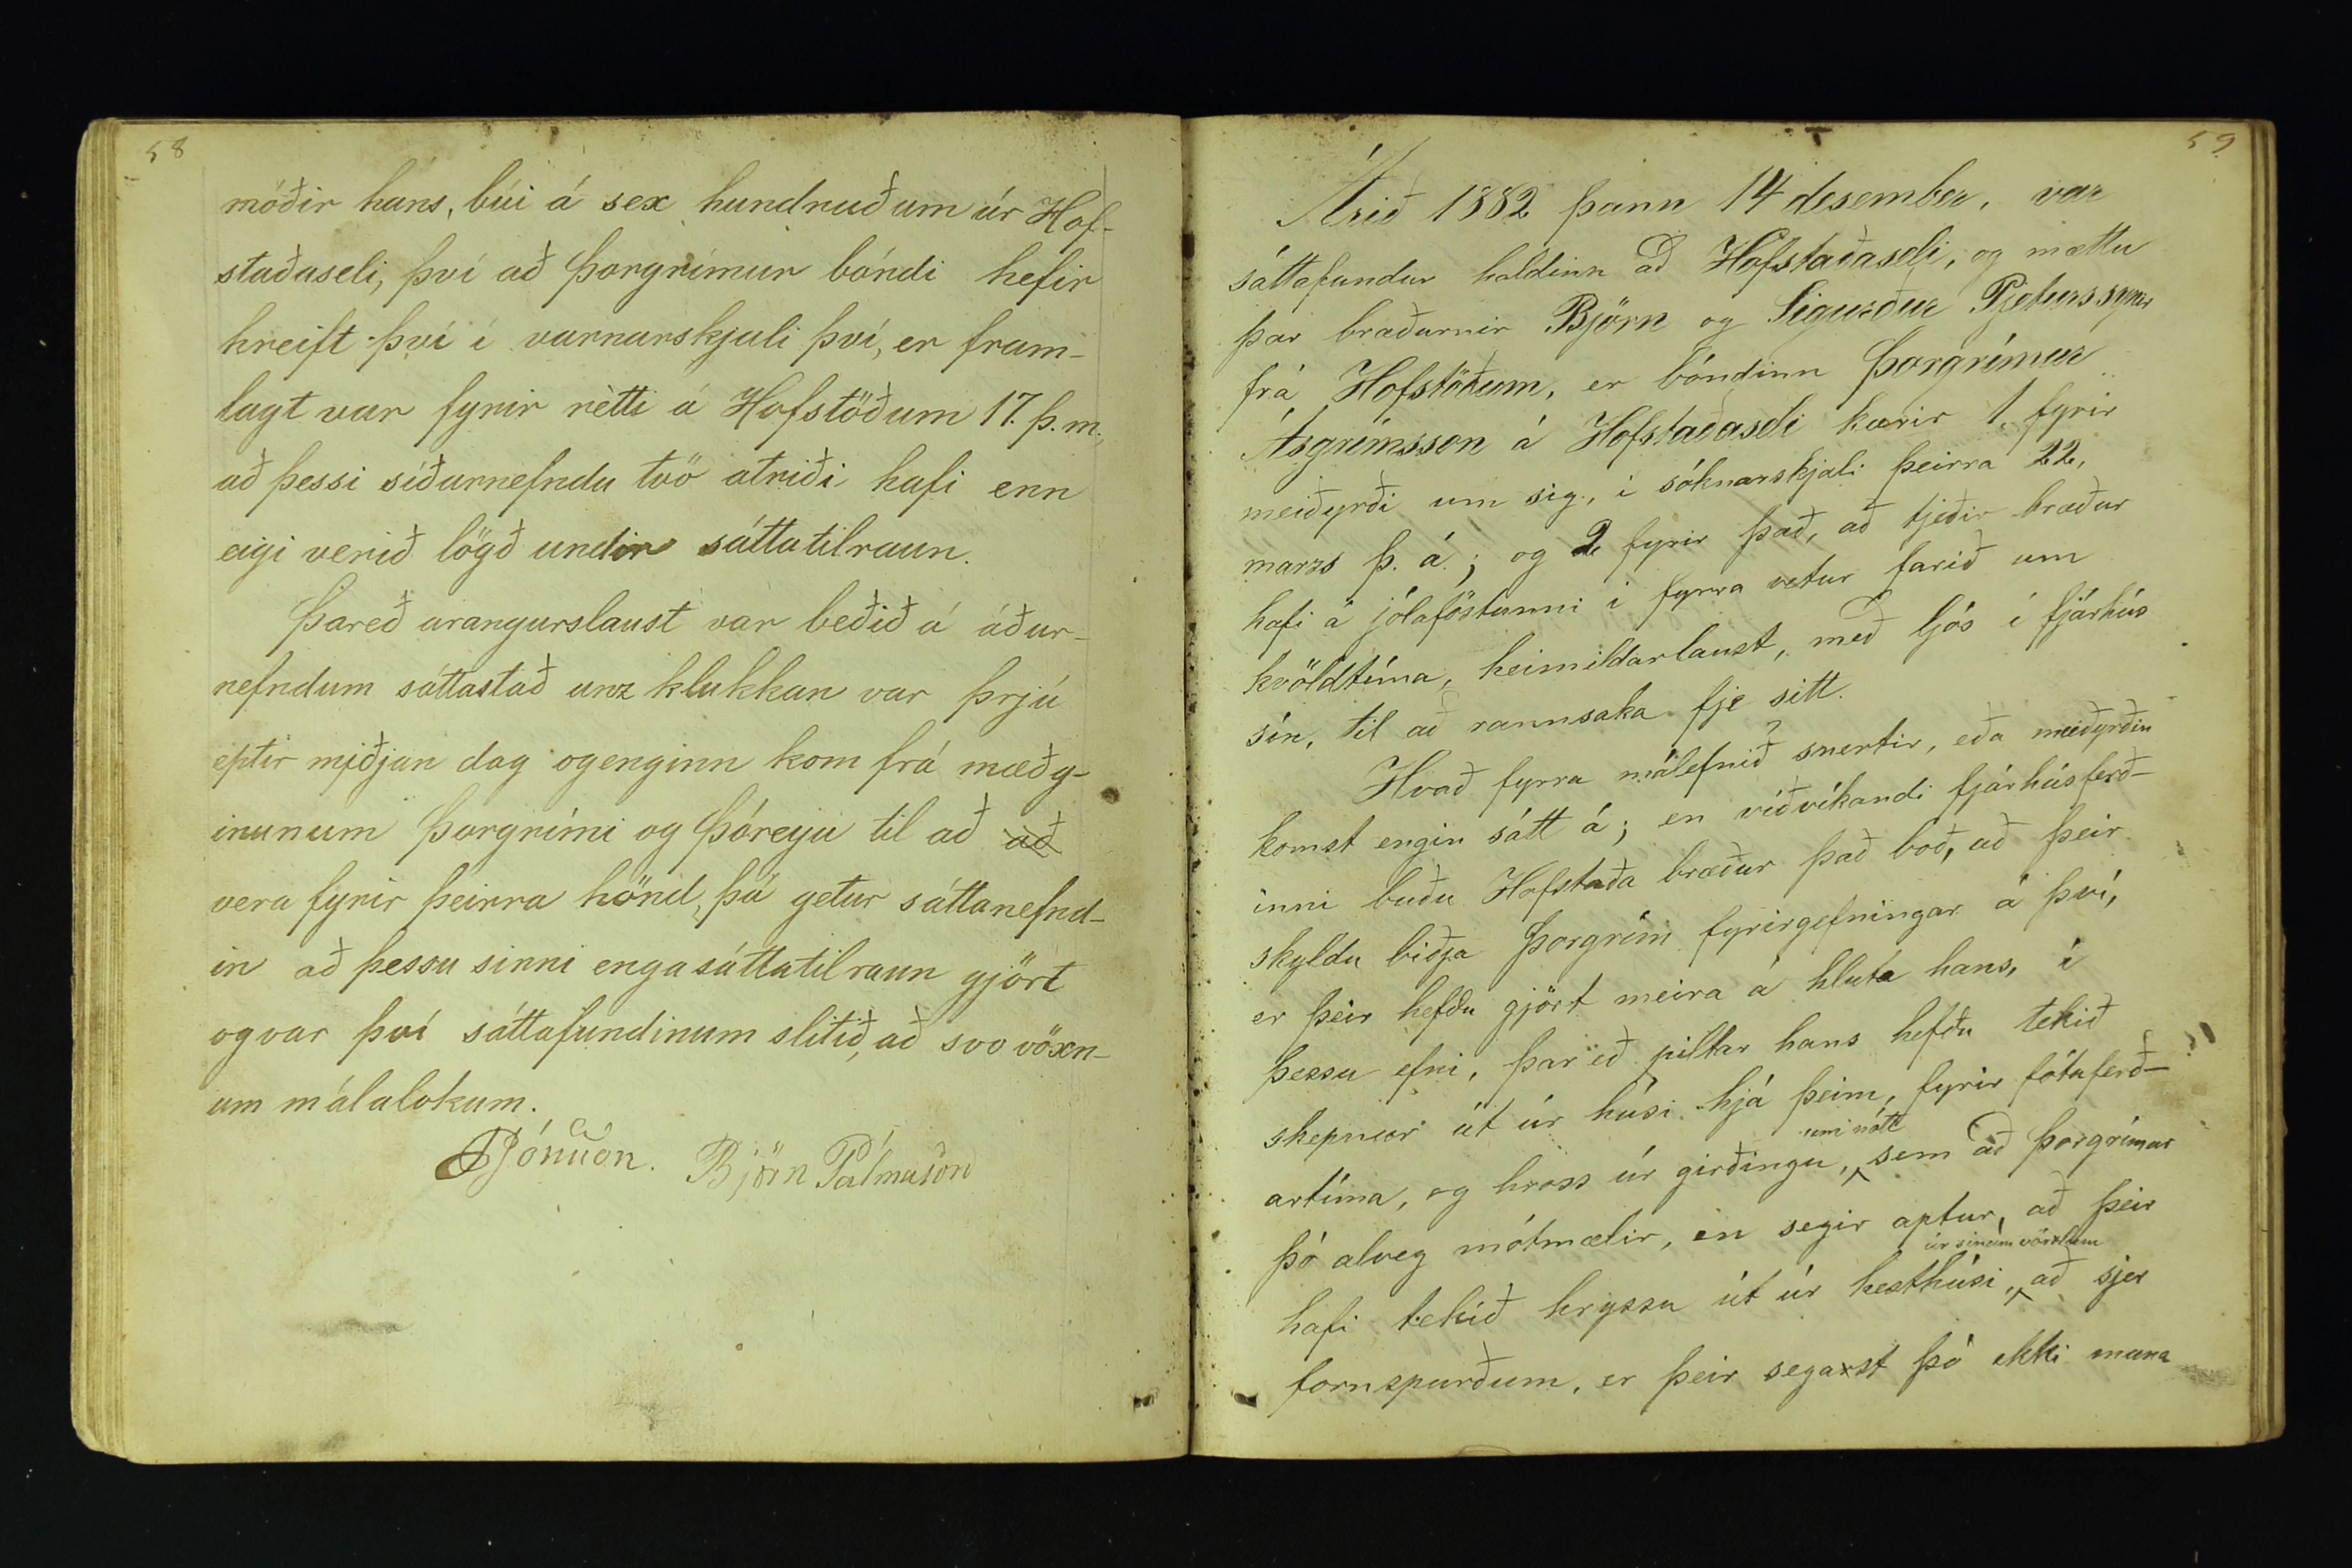 58
móðir hans, búi á sex hundruðum úr Hof-
staðaseli, því að Þorgrímur bóndi hefir
hreift því í varnarskjali því, er fram-
lagt var fyrir rètti á Hofstöðum 17. þ. m.,
að þessi síðarnefndu tvö atriði hafi enn
eigi verið lögð undir sáttatilraun.
Þareð arangurslaust var beðið á áður-
nefndum sáttastað unz klukkan var þrjú
eptir miðjan dag ogenginn kom frá mæðg-
inunum Þorgrími og Þóreyju til að að
vera fyrir þeirra hönd, þá getur sáttanefnd-
in að þessu sinni enga sáttatilraun gjört
og var því sáttafundinum slitið, að svo vöxn-
um málalokum.
Jónsson. Björn Pálmason
59
Árið 1882 þann 14 desember, var
sáttafundur haldinn að Hofstaðaseli, og mættu
þar bræðurnir Björn og Sigurður Pjeturssynir
frá Hofstöðum, er bóndinn Þorgrímur
Ásgrímsson á Hofstaðaseli kærir 1, fyrir
meiðyrði um sig, í sóknarskjali þeirra 22,
marzs þ. á.; og 2, fyrir það, að tjeðir bræður
hafi á jólaföstunni í fyrra vetur farið um
kvöldtíma, heimildarlaust, með ljós í fjárhús
sín, til að rannsaka fje sitt.
Hvað fyrra málefnið snertir, eða meiðyrðin
komst engin sátt á; en viðvíkandi fjárhúsferð-
inni buðu Hofstaða bræður það boð, að þeir
skyldu biðja Þorgrím fyrirgefningar á því,
er þeir hefðu gjört meira á hluta hans, í
þessu efni, þar eð piltar hans hefðu tekið
skepnur út úr húsi hjá þeim, fyrir fótaferð-
artíma, og hross úr girðingu, um nótt sem að Þorgrímur
þó alveg mótmælir, en segir aptur, að þeir
hafi tekið hryssu út úr hesthúsi, úr sínum vörzlum að sjer
fornspurðum, er þeir segast þó ekki muna